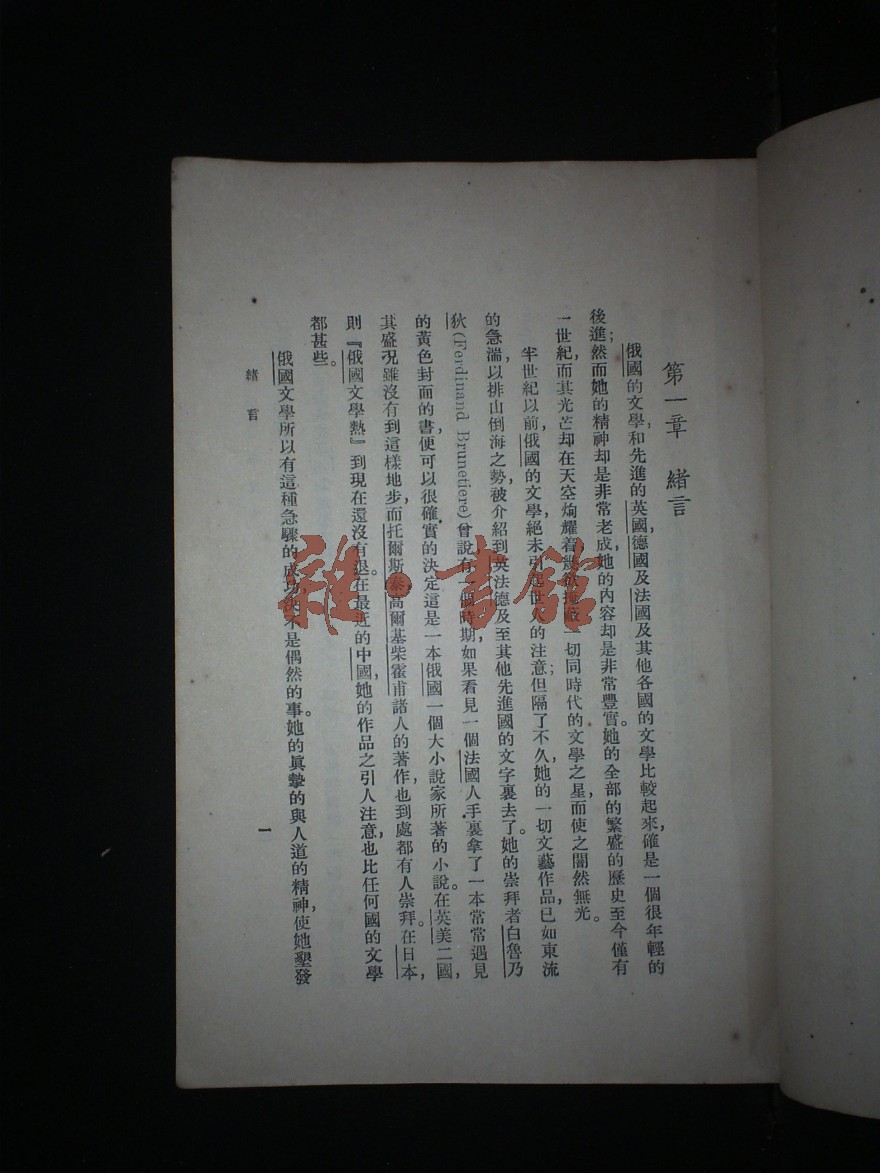 第一章 緒言
俄國的文學，和先進的英國，德國及法國及其他各國的文學比較起來，確是一個很年輕的
後進；然而她的精神却是非常老成，她的內容却是非常豐實。她的全部的繁盛的歷史至今僅有
一世紀，而其光芒却在天空炯耀着，一切同時代的文學之星，而使之闇然無光。
半世紀以前，俄國的文學絕未引起世人的注意；但隔了不久，她的一切文藝作品，已如東流
的急湍，以排山倒海之勢，被介紹到英法德及至其他先進國的文字裏去了。她的崇拜者白魯乃
狄(Ferdinand Brunettere)曾說，有一個時期，如果看見一個法國人手裏拿了一本常常遇見
的黃色封面的書，便可以很確實的決定這是一本俄國一個大小說家所著的小說。在英美二國，
其盛况雖沒有到這樣地步，而托爾斯泰高爾基柴霍甫諸人的著作，也到處都有人崇拜。在日本，
則『俄國文學熱』到現在還沒有退。在最近的中國，她的作品之引人注意，也比任何國的文學
都甚些。
俄國文學所以有這種急驟的成功，決不是偶然的事。她的眞摯的與人道的精神，使她墾發
緒言
一
雜·書館